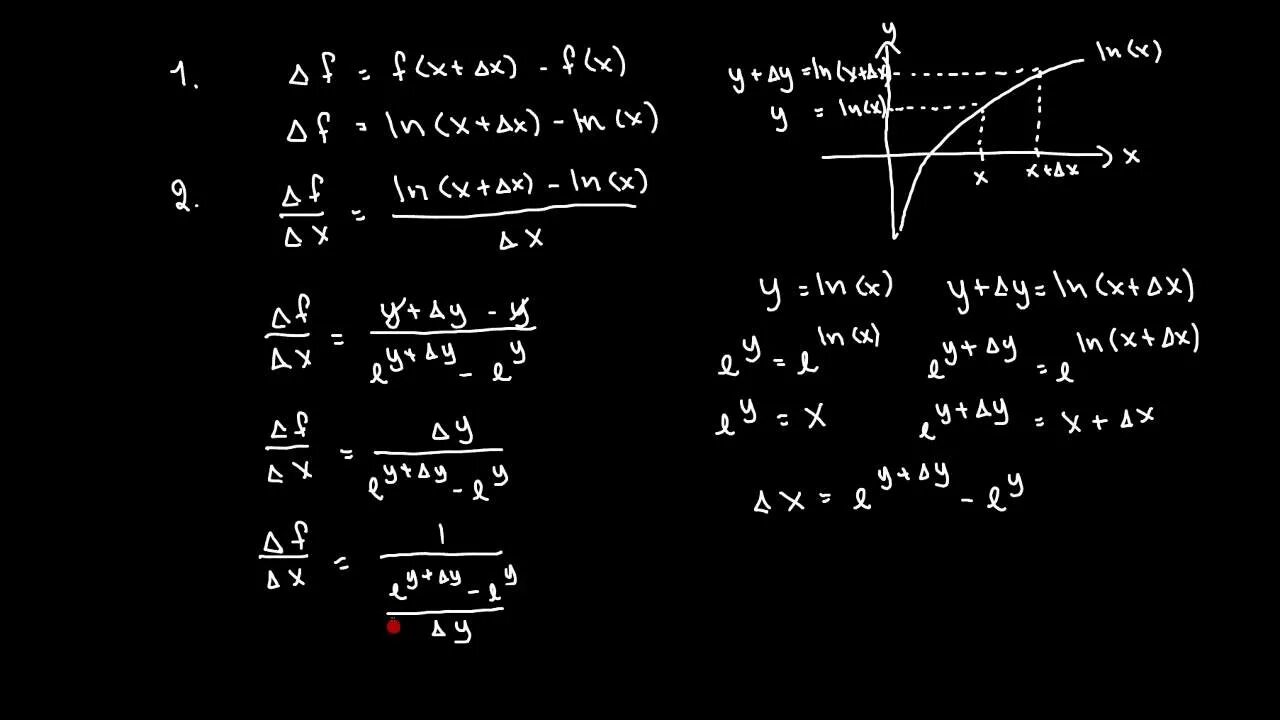 1. Δf = f(x+Δx) - f(x)
Δf = ln(x+Δx) - ln(x)
2. Δf/Δx = (ln(x+Δx) - ln(x))/Δx
Δf/Δx = (y+Δy - y)/(e^(y+Δy) - e^y)
Δf/Δx = Δy/(e^(y+Δy) - e^y)
Δf/Δx = 1/((e^(y+Δy) - e^y)/Δy)
y
ln(x)
y+Δy = ln(x+Δx)
y = ln(x)
x
x
x+Δx
y = ln(x) y+Δy = ln(x+Δx)
e^y = e^ln(x) e^(y+Δy) = e^ln(x+Δx)
e^y = x e^(y+Δy) = x + Δx
Δx = e^(y+Δy) - e^y